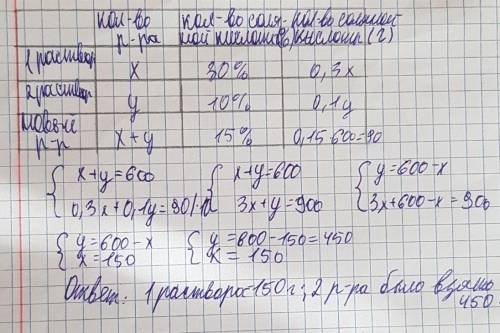 кол-во р-ра | кол-во соля-ной кислоты % | кол-во соляной кислоты (г)
1 раствор | x | 30% | 0,3x
2 раствор | y | 10% | 0,1y
новый р-р | x+y | 15% | 0,15·600=90
{ x+y=600 { x+y=600 { y=600-x
0,3x+0,1y=90 |·10 3x+y=900 3x+600-x=900
{ y=600-x { y=600-150=450
x=150 x=150
Ответ: 1 раствора-150 г; 2 р-ра было взято
450